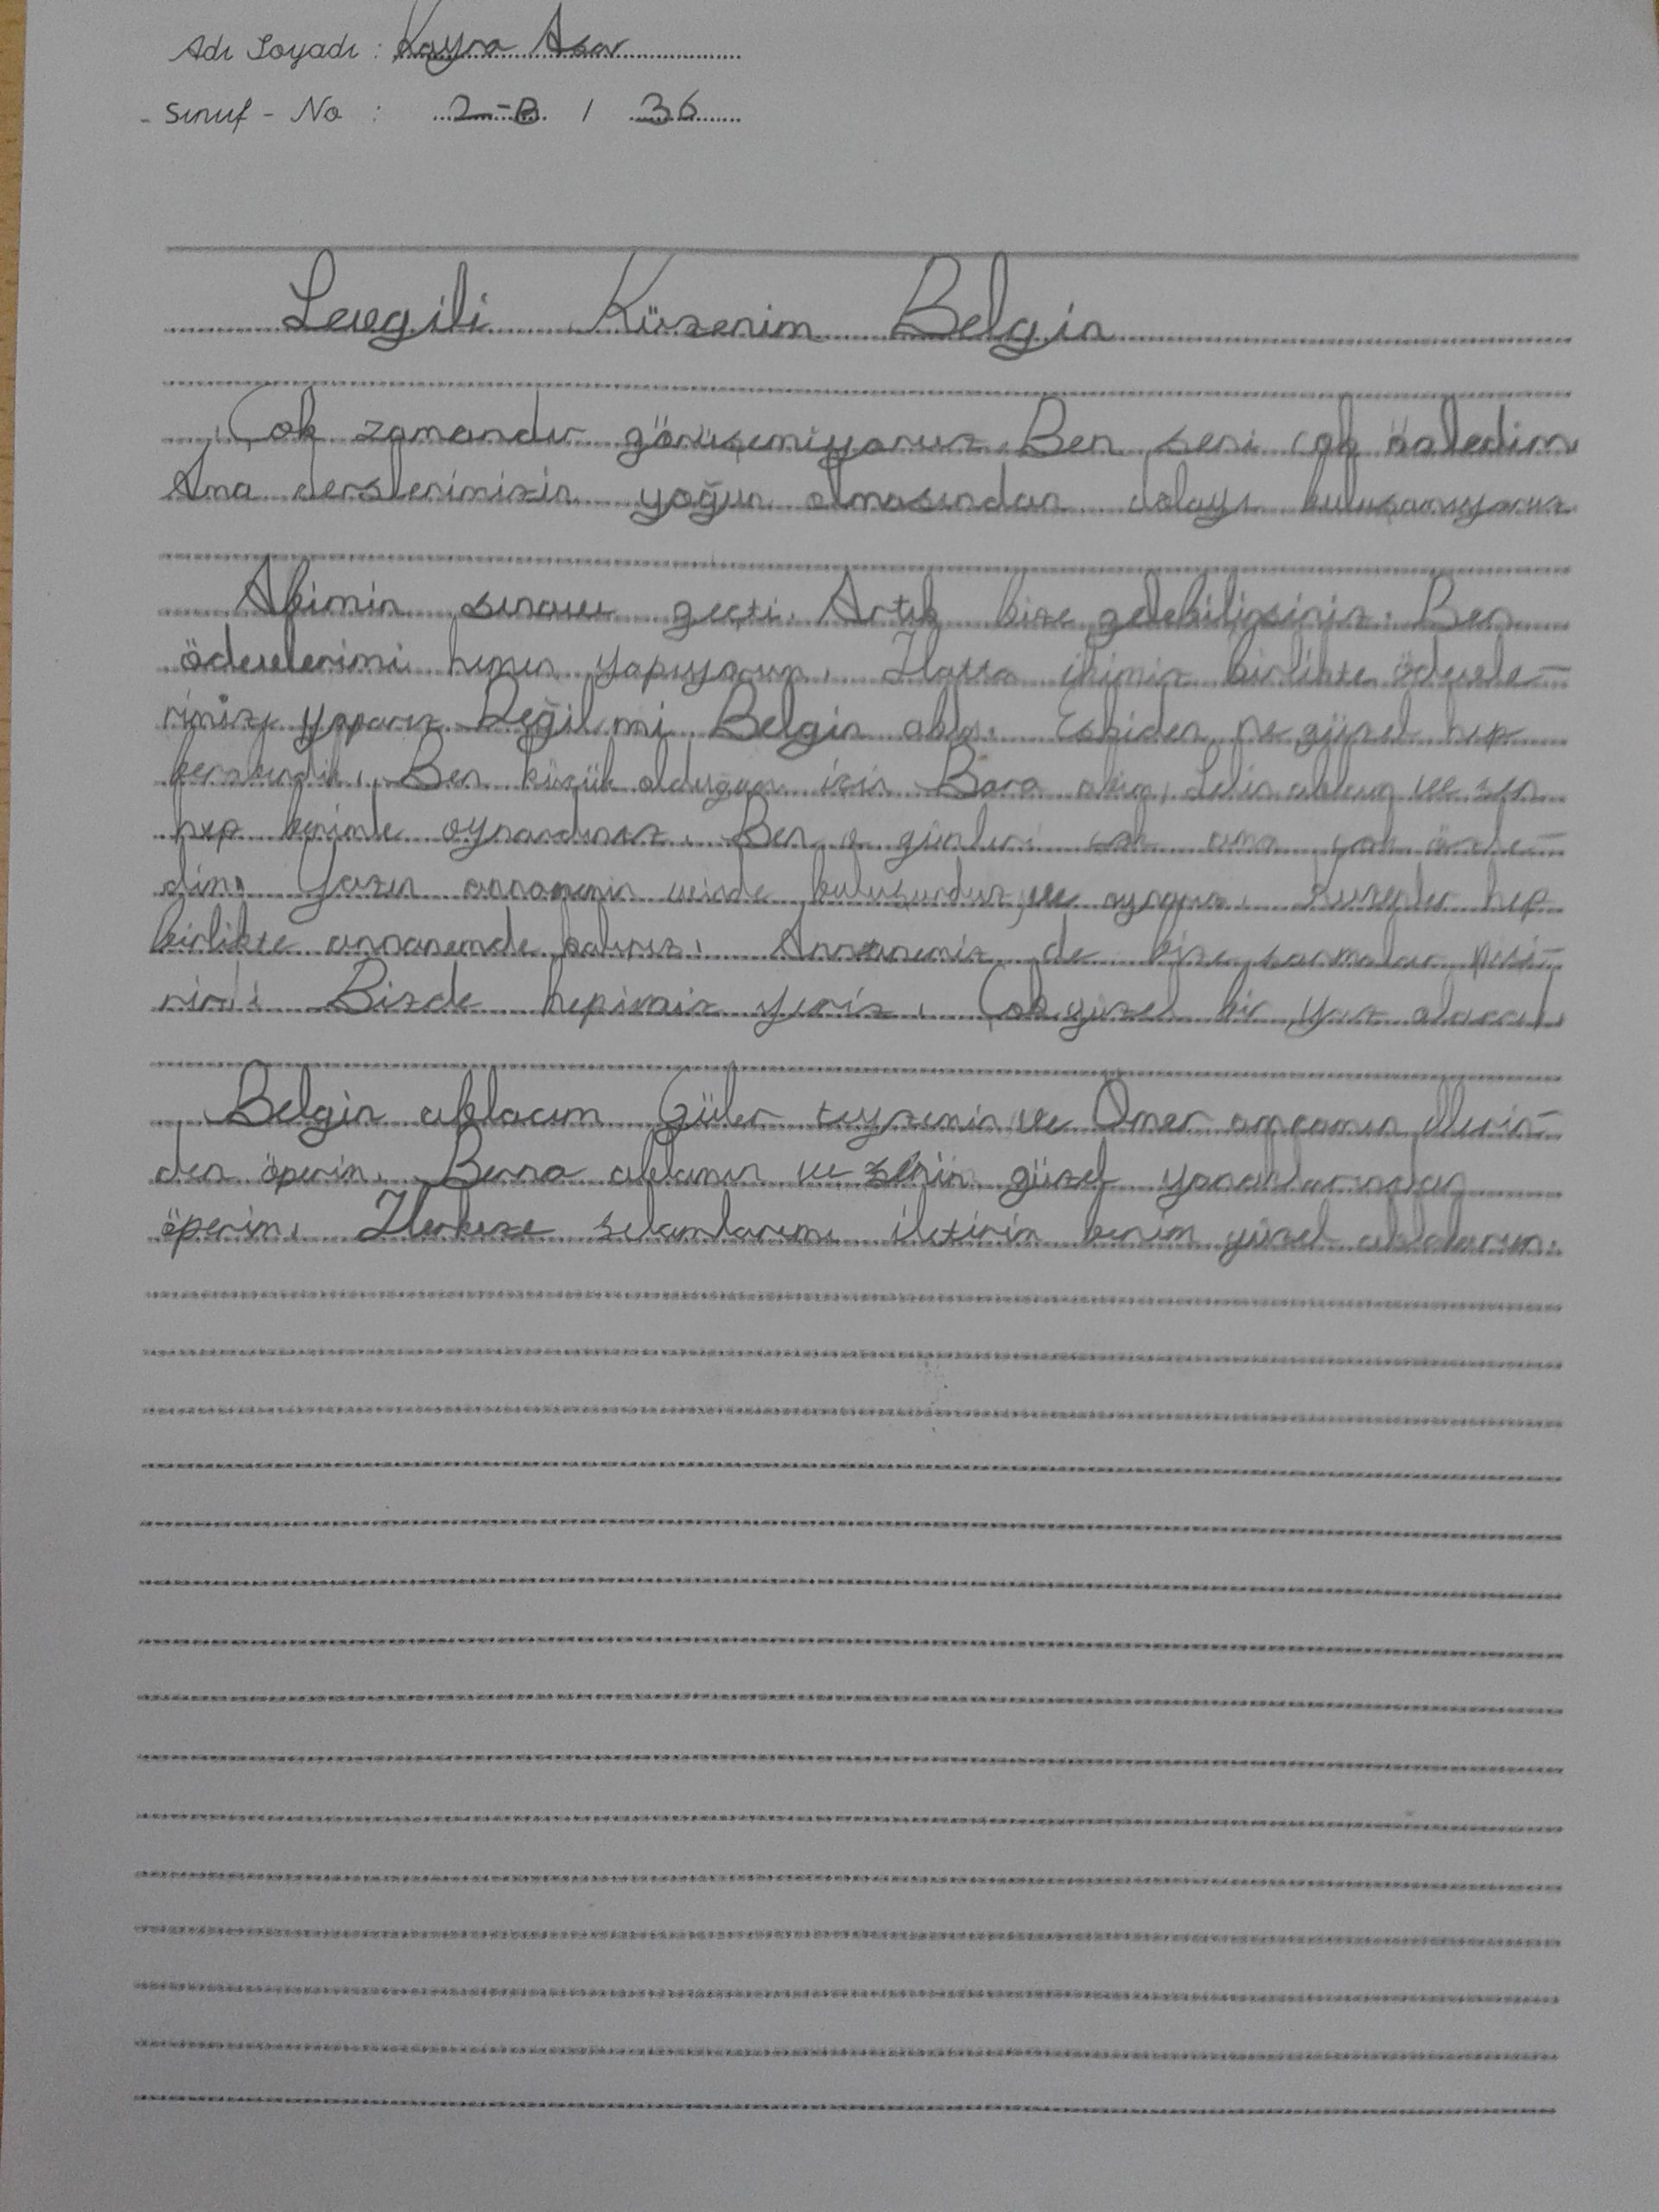 Adı Soyadı : Kayra Acar
Sınıf - No : 2-B / 36
Sevgili Kuzenim Belgin
Çok zamandır görüşemiyoruz. Ben seni çok özledim
Ama derslerimizin yoğun olmasından dolayı buluşamıyoruz
Abimin sınavı geçti. Artık bize gelebilirsiniz. Ben
ödevlerimi hemen yapıyorum. Hatta ikimiz birlikte ödevle-
rimizi yaparız Değil mi Belgin abla. Eskiden ne güzel hep
beraberdik. Ben küçük olduğum için Bora abim, Selin ablam ve sen
hep benimle oynardınız. Ben o günleri çok ama çok özle-
dim. Yazın annanemin evinde buluşurduz ve oynarız. Kuzenler hep
birlikte annanemde kalırız. Annanemiz de bize sarmalar pişi-
rir. Bizde hepimiz yeriz. Çok güzel bir yaz olacak.
Belgin ablacım Güler teyzemin ve Ömer amcamın ellerin-
den öperim. Berna ablamın ve senin güzel yanaklarından
öperim. Herkeze selamlarımı iletirin benim güzel ablalarım.